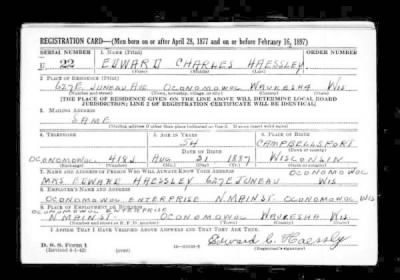 REGISTRATION CARD—(Men born on or after April 28, 1877 and on or before February 16, 1897)
SERIAL NUMBER 1. NAME (Print) ORDER NUMBER
U 22 EDWARD CHARLES HAESSLEY
(First) (Middle) (Last)
2. PLACE OF RESIDENCE (Print)
627 E. JUNEAU AVE OCONOMOWOC WAUKESHA WIS.
(Number and street) (Town, township, village, or city) (County) (State)
[THE PLACE OF RESIDENCE GIVEN ON THE LINE ABOVE WILL DETERMINE LOCAL BOARD
JURISDICTION; LINE 2 OF REGISTRATION CERTIFICATE WILL BE IDENTICAL]
3. MAILING ADDRESS
SAME
[Mailing address if other than place indicated on line 2. If same insert word same]
4. TELEPHONE 5. AGE IN YEARS 6. PLACE OF BIRTH
54 CAMPBELLSPORT
DATE OF BIRTH (Town or county)
OCONOMOWOC 418J AUG 21 1887 WISCONSIN
(Exchange) (Number) (Mo.) (Day) (Yr.) (State or country)
7. NAME AND ADDRESS OF PERSON WHO WILL ALWAYS KNOW YOUR ADDRESS OCONOMOWOC
MRS EDWARD HAESSLEY 627 E JUNEAU WIS
8. EMPLOYER'S NAME AND ADDRESS
OCONOMOWOC ENTERPRISE N. MAIN ST. OCONOMOWOC WIS
9. PLACE OF EMPLOYMENT OR BUSINESS
OCONOMOWOC ENTERPRISE
N. MAIN ST. OCONOMOWOC WAUKESHA WIS.
(Number and street or R. F. D. number) (Town) (County) (State)
I AFFIRM THAT I HAVE VERIFIED ABOVE ANSWERS AND THAT THEY ARE TRUE.
D. S. S. Form 1
(Revised 4-1-42) Edward C. Haessly